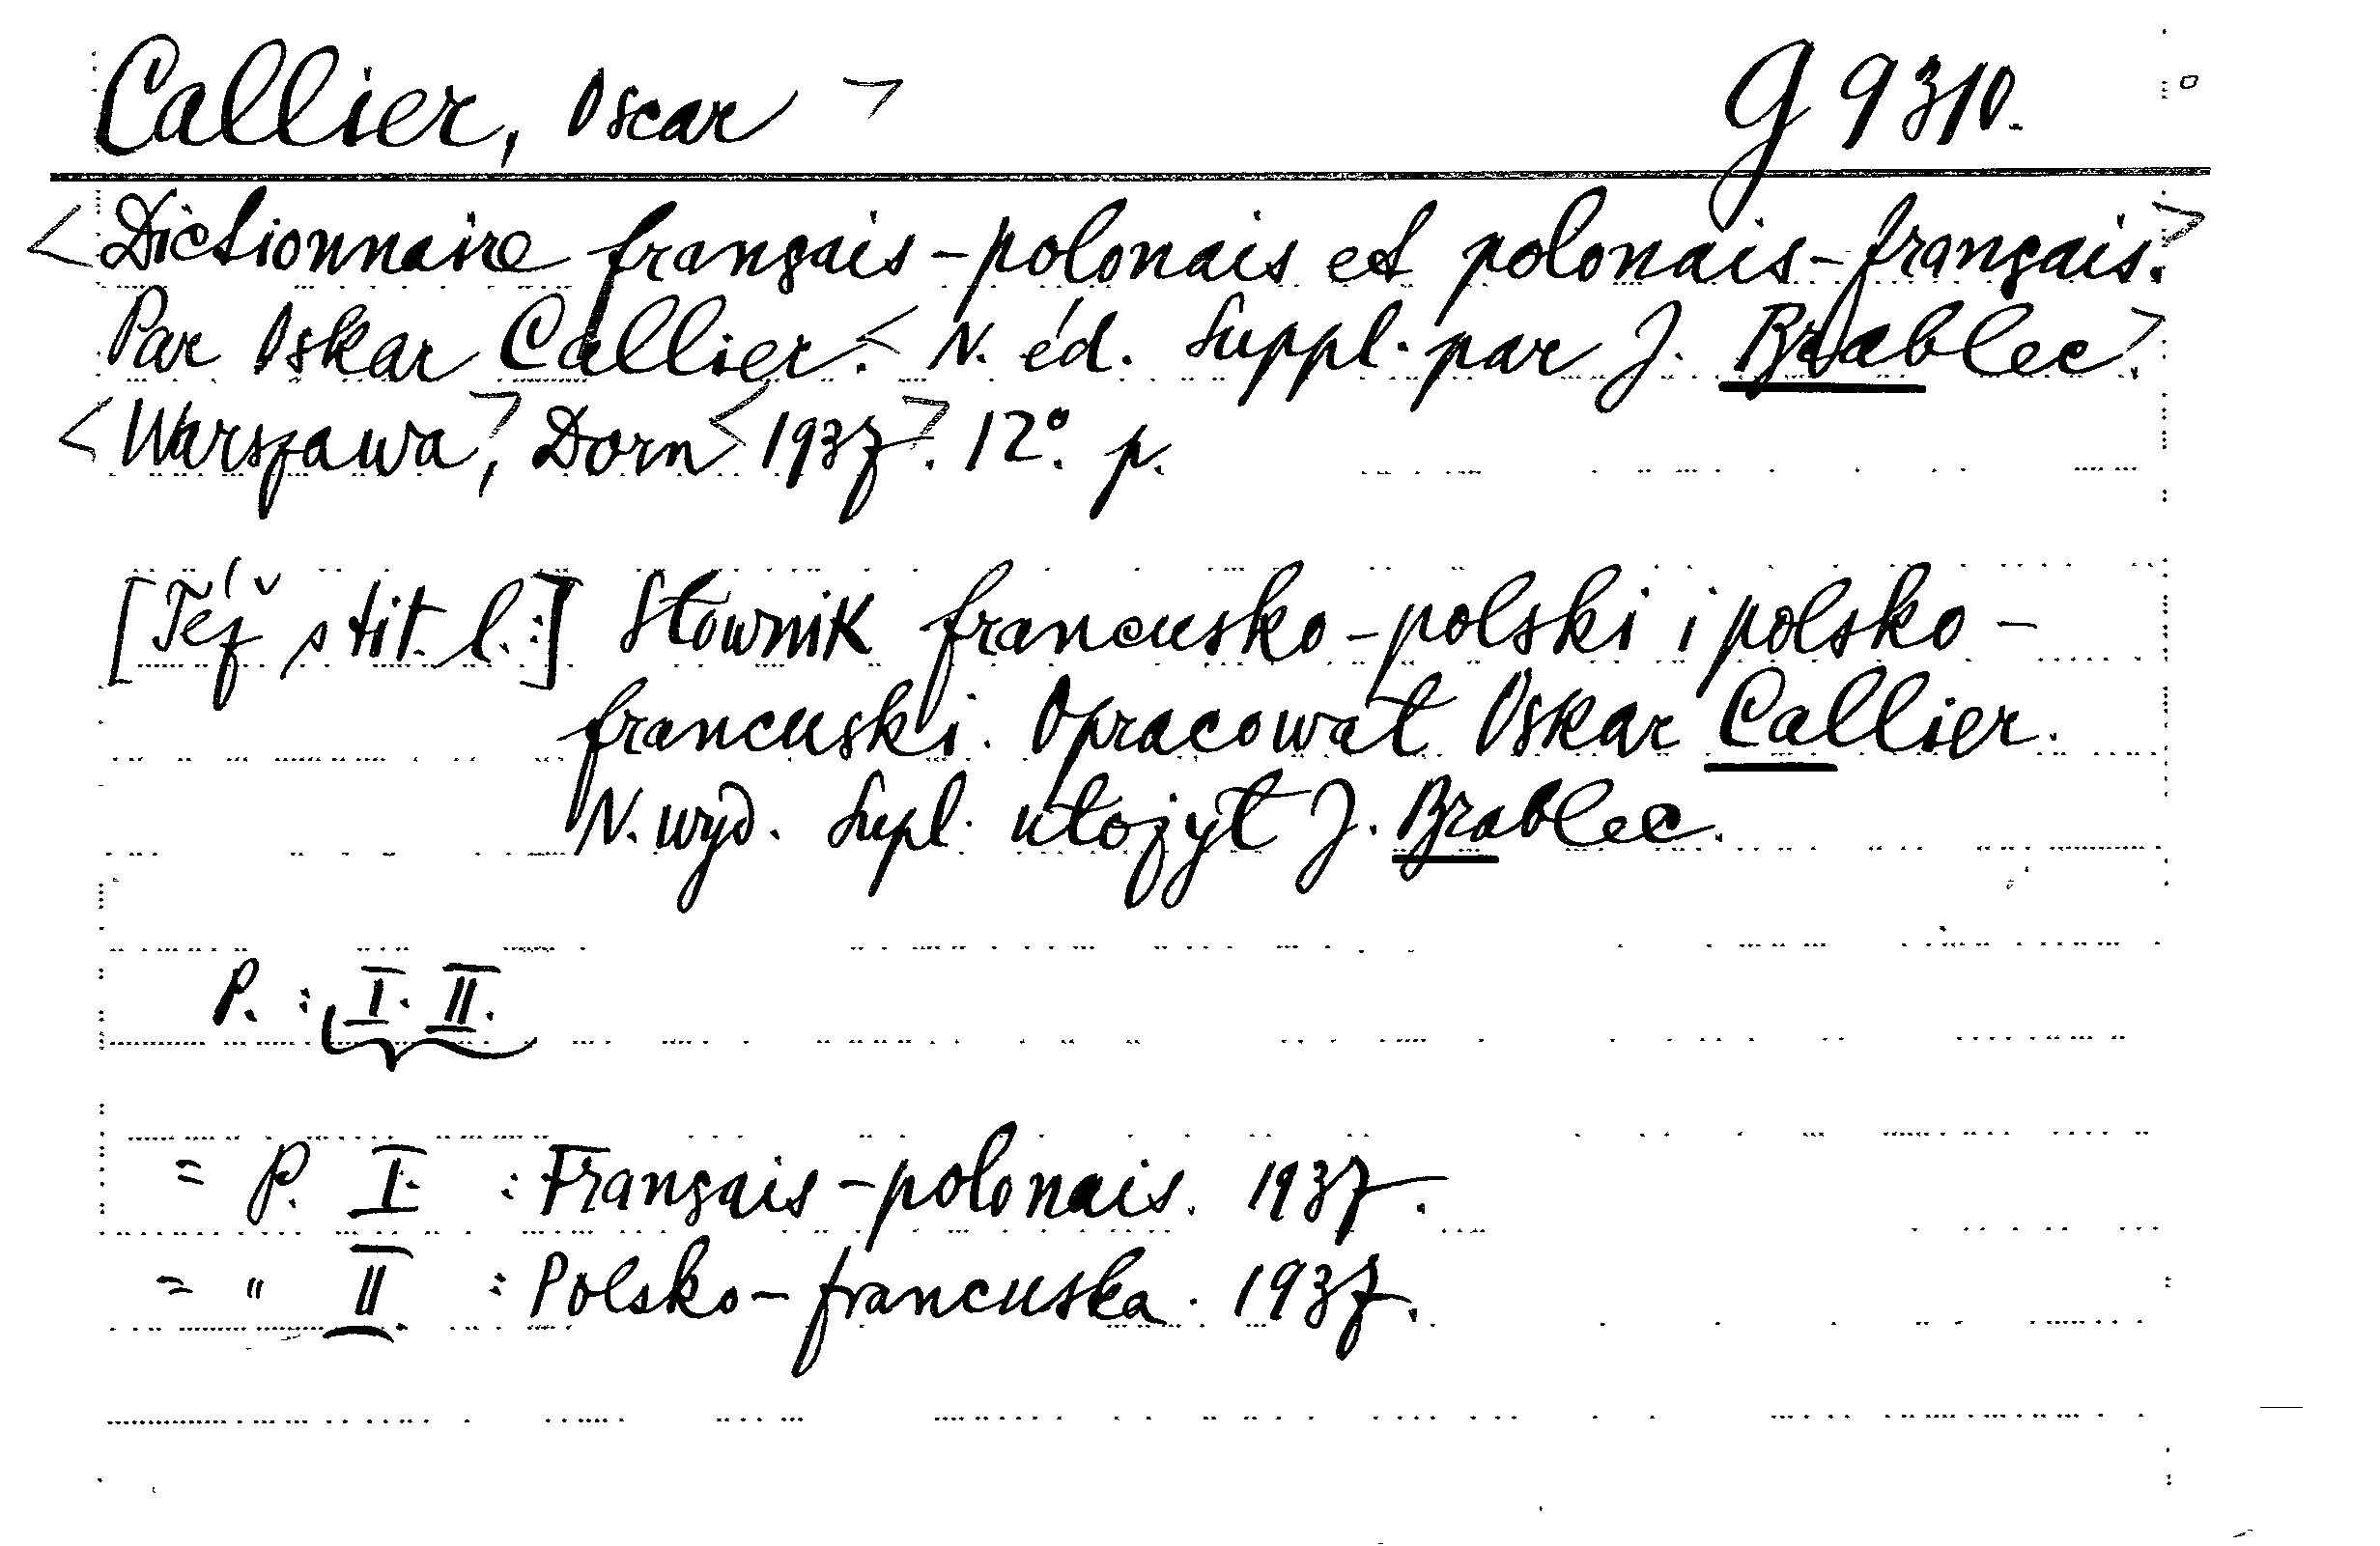 Callier, Oscar > G 9310.
<Dictionnaire français-polonais et polonais-français.>
Par Oskar Callier. < N. éd. Suppl. par J. Brablec.>
<Warszawa,> Dorn <1937>. 12°. p.
[Též s tit. l.:] Słownik francusko-polski i polsko-
francuski. Opracował Oskar Callier.
N. wyd. Supl. ułożył J. Brablec.
P. : I. II.
= P. I. : Français-polonais. 1937.
= " II. : Polsko-francuska. 1937.